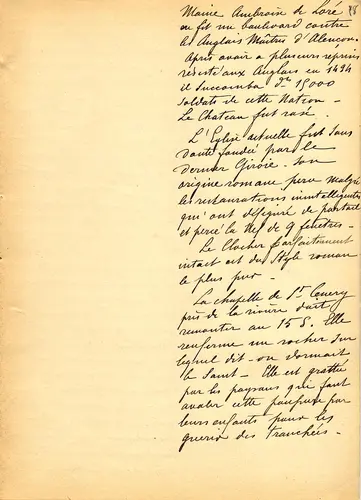 Maine Ambroise de Loré
en fit un boulevard contre
les Anglais Maîtres d'Alençon.
Après avoir à plusieurs reprises
résisté aux Anglais en 1434
il succomba 15000
Soldats de cette Nation –
Le Chateau fut rasé.
L'Eglise actuelle fut Sans
doute fondée par le
dernier Giroie – Son
origine romane perce malgré
les restaurations inintelligentes
qui ont défiguré le portail
et percé la Nef de 9 fenêtres –
Le Clocher parfaitement
intact est du Style roman
le plus pur –
La chapelle de St Cenery
près de la rivière doit
remonter au 15 S. Elle
renferme un rocher sur
lequel dit-on dormait
le Saint – Elle est grattée
par les paysans qui font
avaler cette poussière par
leurs enfants pour les
guérir des tranchées –